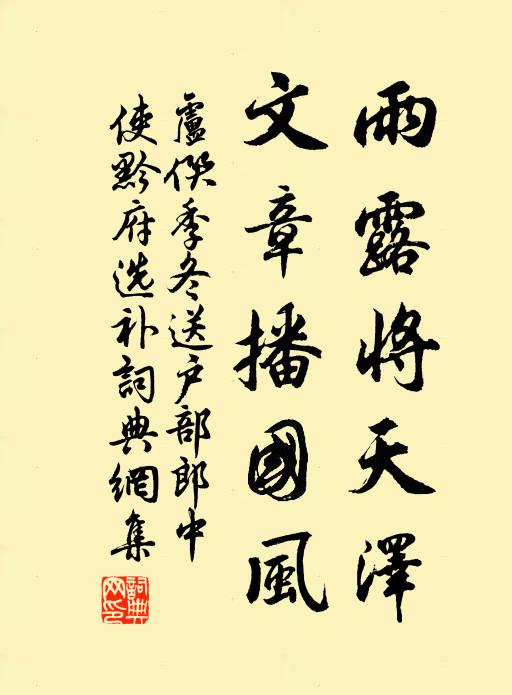 雨露將天澤
文章播國風
盧僎季冬送戶部郎中
使黔府选补詞典網集
詞典網印